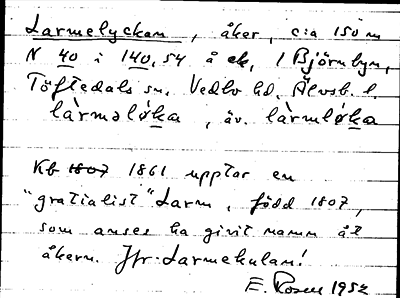 Larmelyckan, åker, c:a 150 m
N 40 i 140,54 å ek, 1 Björnbyn,
Töftedals sn, Vedbo hd, Älvsb. l.
làrməlǿka, äv. làrmlǿka
Kb 1807 1861 upptar en
"gratialist" Larm, född 1807,
som anses ha givit namn åt
åkern. Jfr. Larmekulan!
E. Rosen 1952